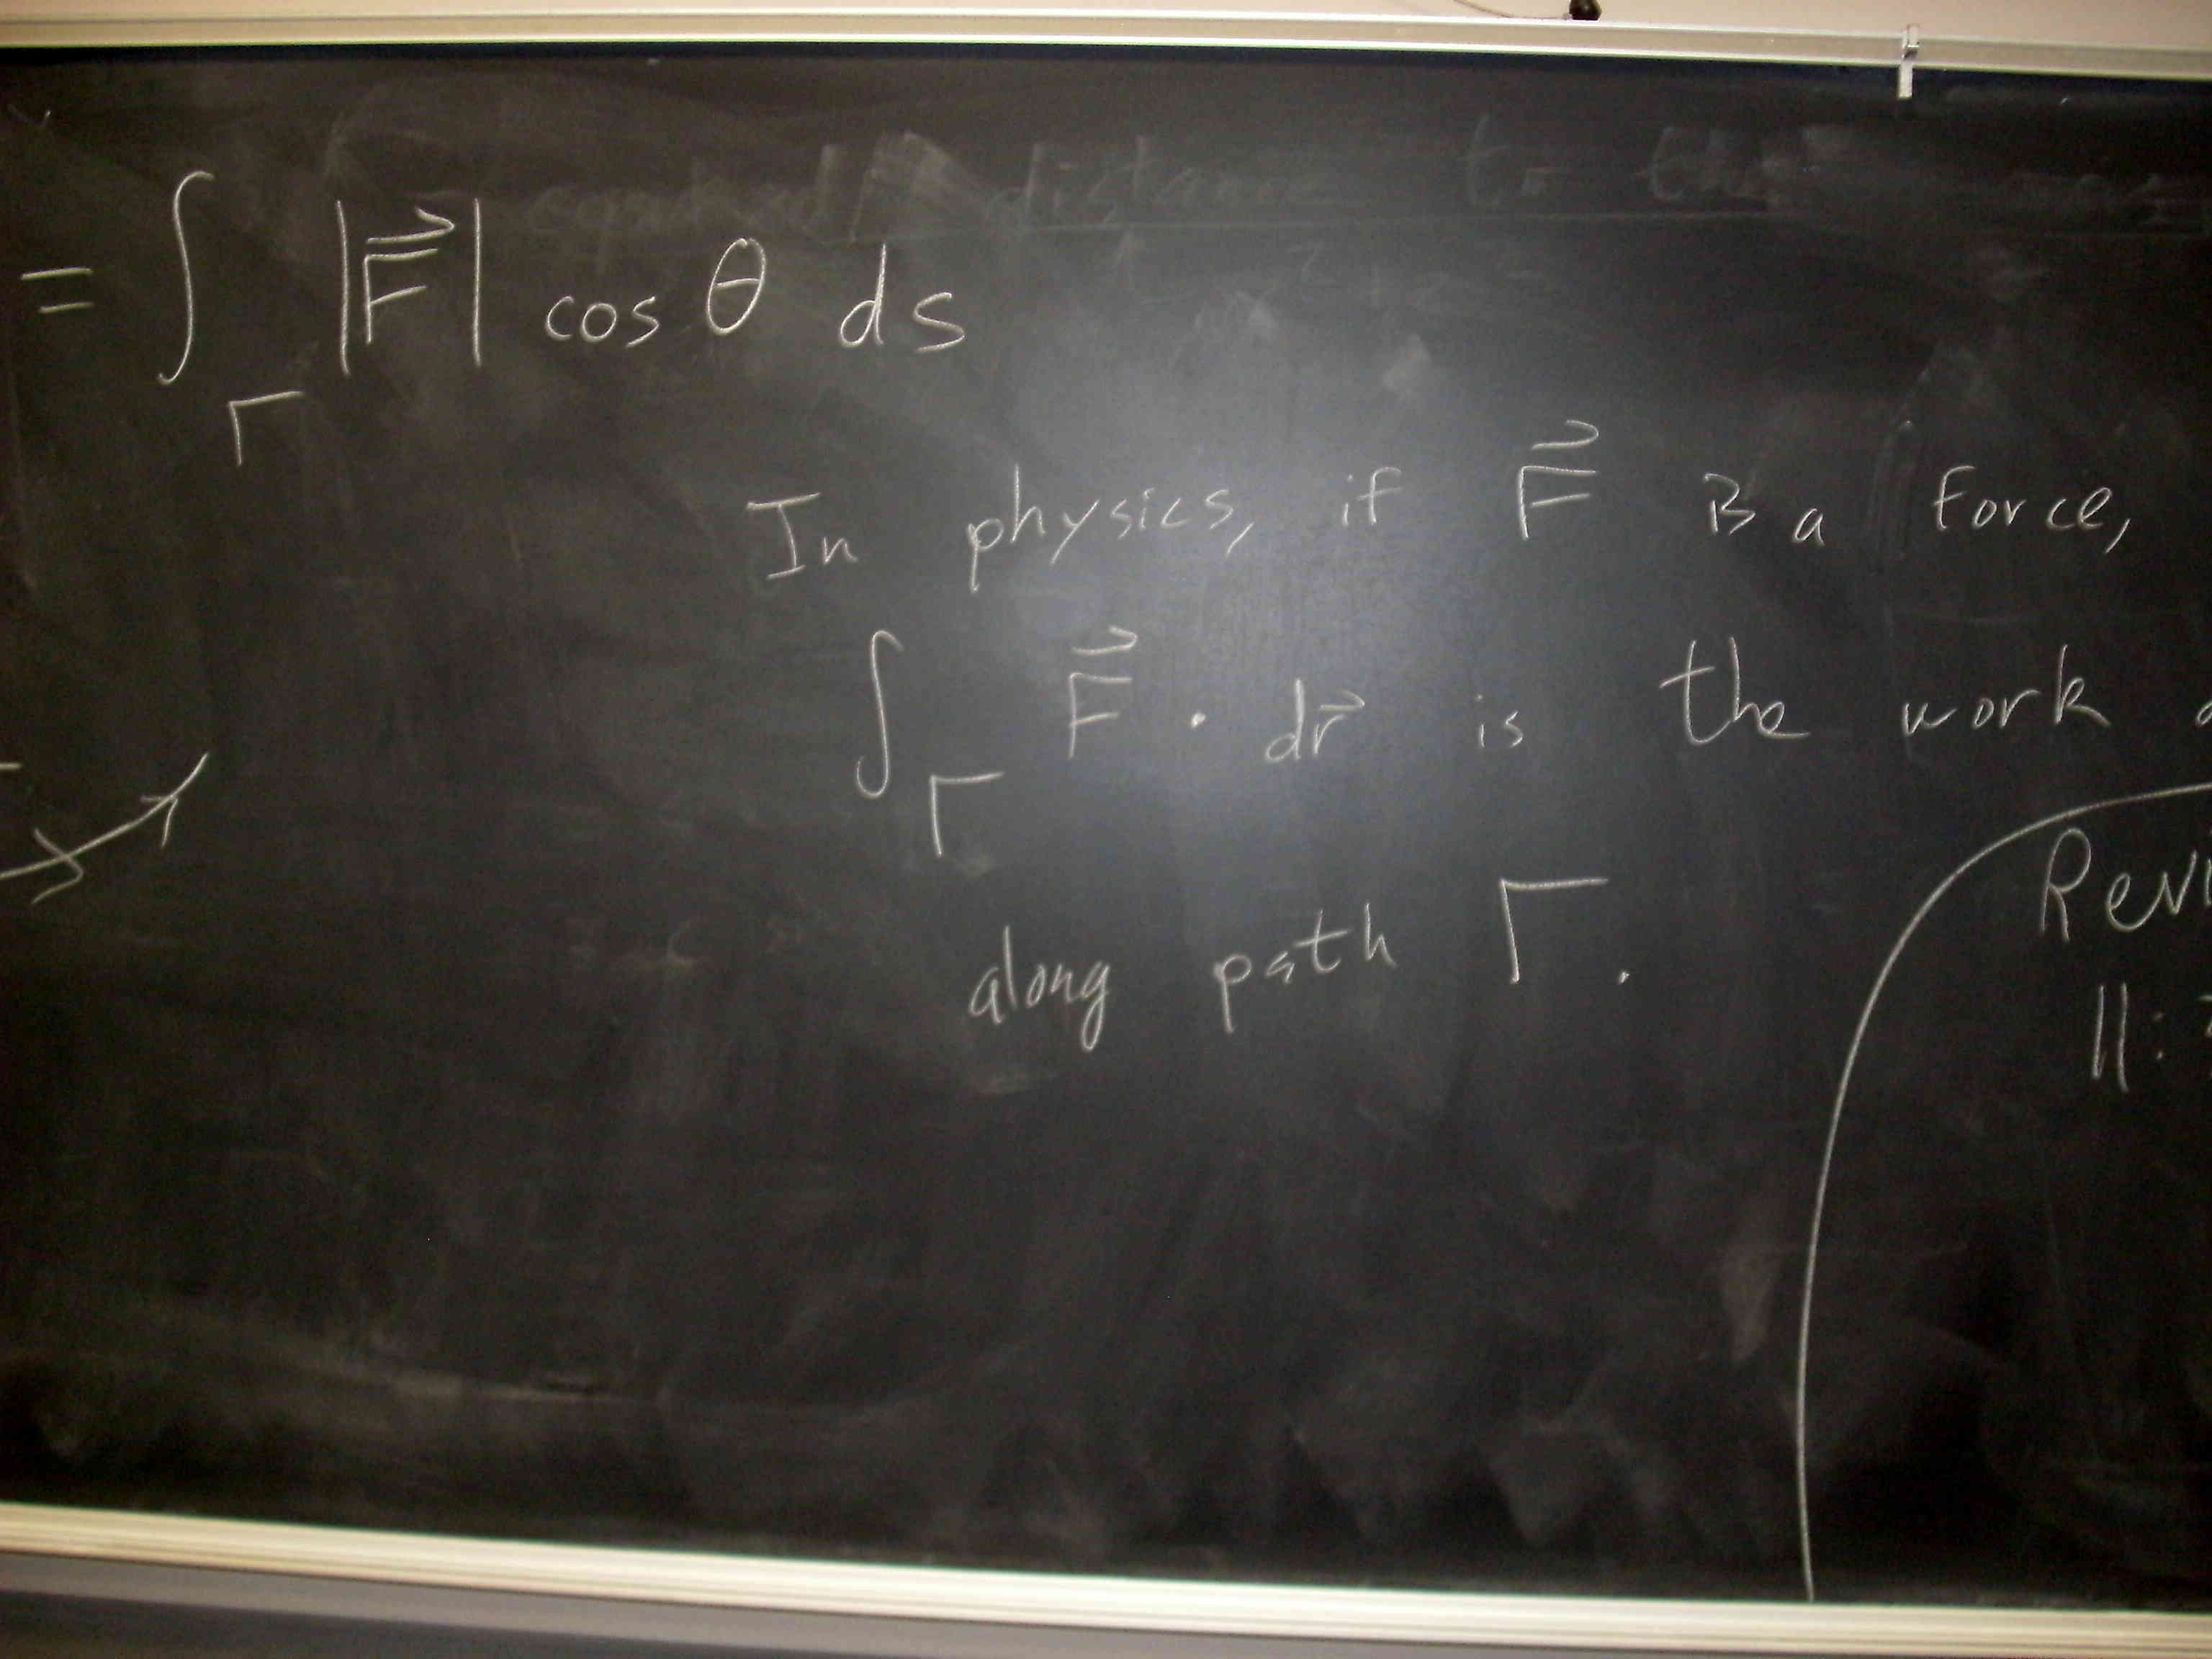 = ∫_Γ |F⃗| cos θ ds
In physics, if F⃗ is a force,
∫_Γ F⃗ · dr⃗ is the work
along path Γ.
Revi
11: